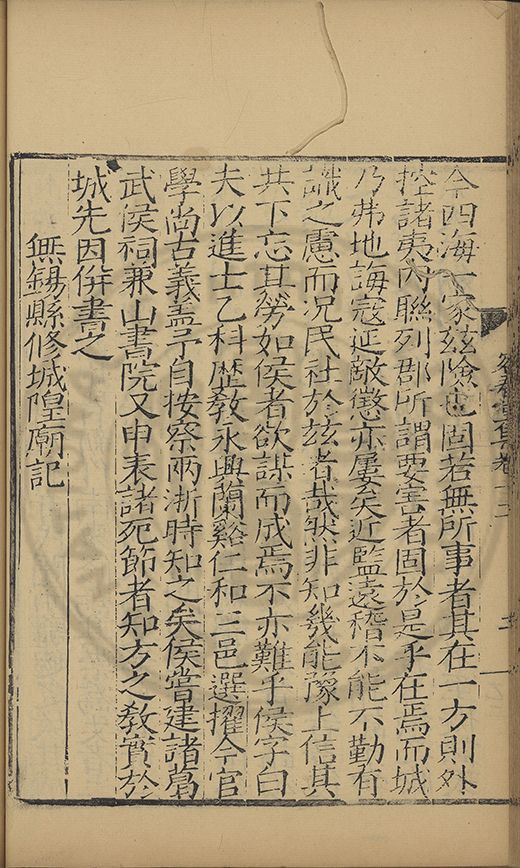 今四海一家茲險也固若無所事者其在一方則外
控諸夷內聯列郡所謂要害者固於是乎在焉而城
乃弗地誨寇延敵懲亦屢矣近監遠稽不能不勤有
識之慮而况民社於茲者哉然非知幾能豫上信其
共下忘其勞如侯者欲謀而成焉不亦難乎侯字白
夫以進士乙科歷敎永興蘭谿仁和三邑選擢今官
學尚古義葢予自按察兩浙時知之矣侯嘗建諸葛
武侯祠兼山書院又申表諸死節者知方之敎實於
城先因併書之
無錫縣修城隍廟記